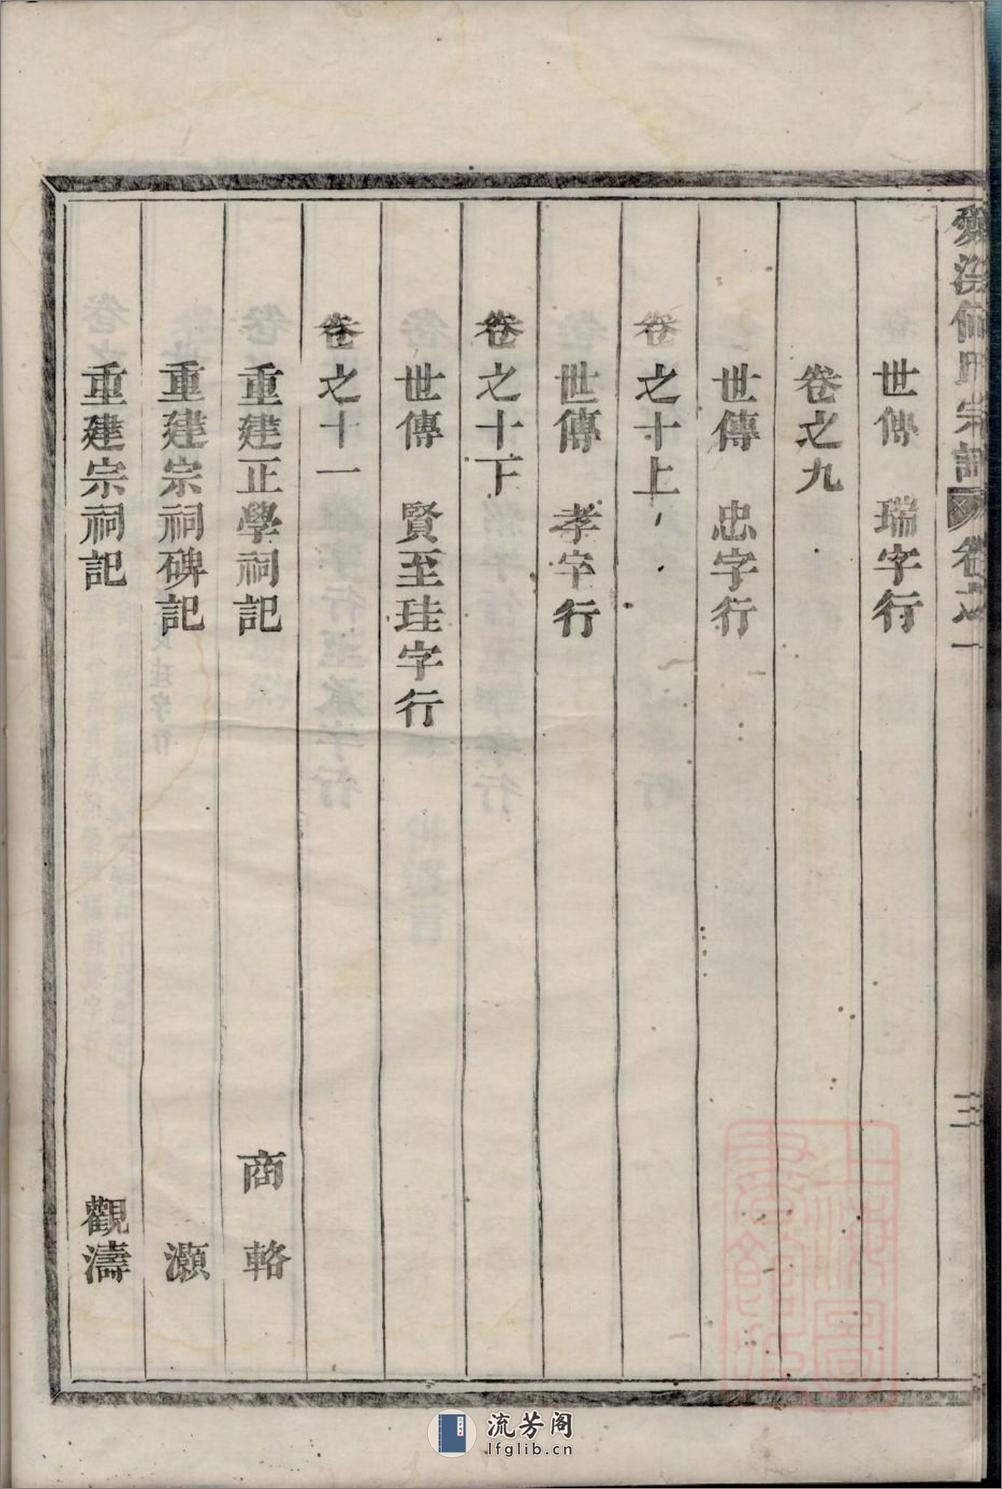 世傳　瑞字行
卷之九
世傳　忠字行
卷之十上
世傳　孝字行
卷之十下
世傳　賢至珪字行
卷之十一
重建正學祠記　商輅
重建宗祠碑記　灝
重建宗祠記　觀濤
氏宗譜　卷之一
三
上海圖書館藏
流芳阁
lfglib.cn